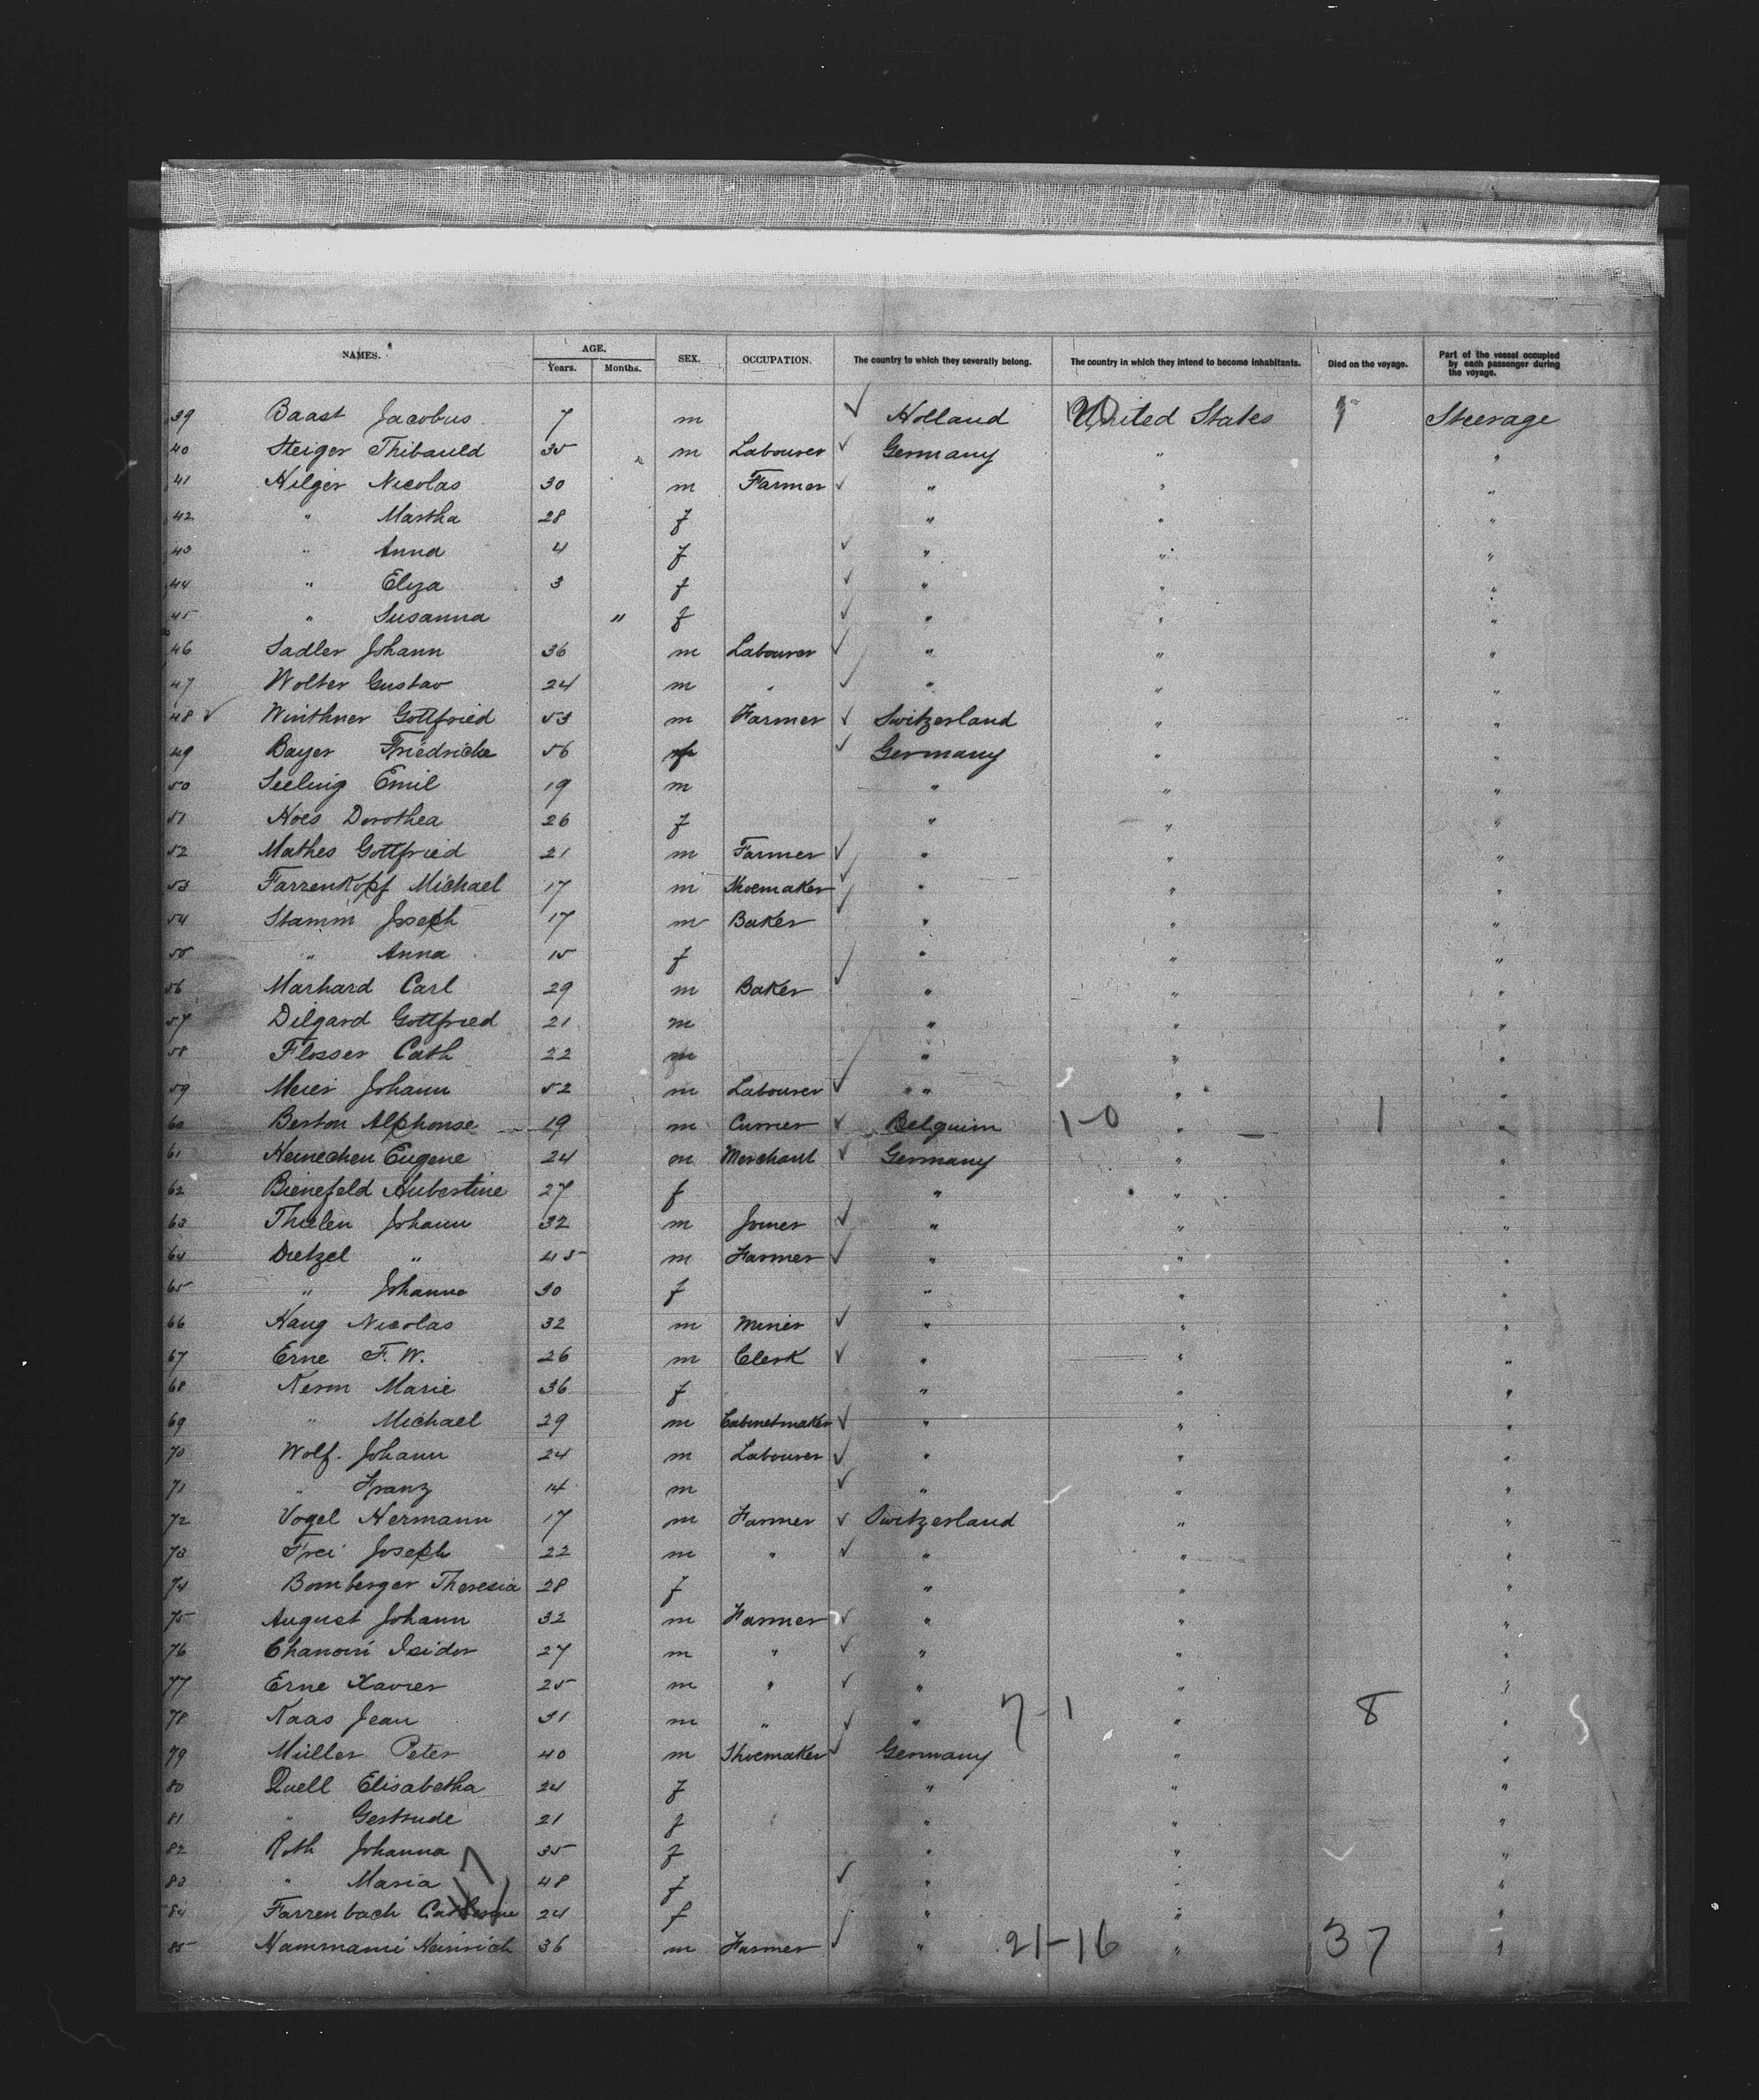 NAMES. AGE. SEX. OCCUPATION. The country to which they severally belong. The country in which they intend to become inhabitants. Died on the voyage. Part of the vessel occupied by each passenger during the voyage.
Years. Months.
39 Baast Jacobus 7 m Holland United States 1 Steerage
40 Steiger Thibauld 35 m Labourer Germany " "
41 Hilger Nicolas 30 m Farmer " " "
42 " Martha 28 f " " "
43 " Anna 4 f " " "
44 " Eliza 3 f " " "
45 " Susanna " f " " "
46 Sadler Johann 36 m Labourer " " "
47 Wolter Gustav 24 m " " " "
48 Winthner Gottfried 53 m Farmer Switzerland " "
49 Bayer Friedricke 56 f Germany " "
50 Seeling Emil 19 m " " "
51 Hoes Dorothea 26 f " " "
52 Mathes Gottfried 21 m Farmer " " "
53 Farrenkopf Michael 17 m Shoemaker " " "
54 Stamm Joseph 17 m Baker " " "
55 " Anna 15 f " " "
56 Marhard Carl 29 m Baker " " "
57 Dilgard Gottfried 21 m " " "
58 Flosser Cath 22 m " " "
59 Meier Johann 52 m Labourer " " " "
60 Berton Alphonse 19 m Currier Belguim 1-0 " 1 "
61 Heinechen Eugene 24 m Merchant Germany " "
62 Bienefeld Hubertine 27 f " " "
63 Thielen Johann 32 m Joiner " " "
64 Dietzel " 45 m Farmer " " "
65 " Johanna 30 f " " "
66 Haug Nicolas 32 m Miner " " "
67 Erne F. W. 26 m Clerk " " "
68 Kern Marie 36 f " " "
69 " Michael 29 m Cabinetmaker " " "
70 Wolf. Johann 24 m Labourer " " "
71 " Franz 14 m " " "
72 Vogel Hermann 17 m Farmer Switzerland " "
73 Frei Joseph 22 m " " " "
74 Bomberger Theresia 28 f " " "
75 August Johann 32 m Farmer " " "
76 Chanoin Isidor 27 m " " " "
77 Erne Xavier 25 m " " " "
78 Kaas Jean 31 m " " 7-1 " 8 "
79 Müller Peter 40 m Shoemaker Germany " "
80 Quell Elisabetha 24 f " " "
81 " Gertrude 21 f " " "
82 Roth Johanna 35 f " " "
83 " Maria 48 f " " "
84 Farrenbach Catherine 24 f " " "
85 Hammami Heinrich 36 m Farmer " 21-16 " 37 "